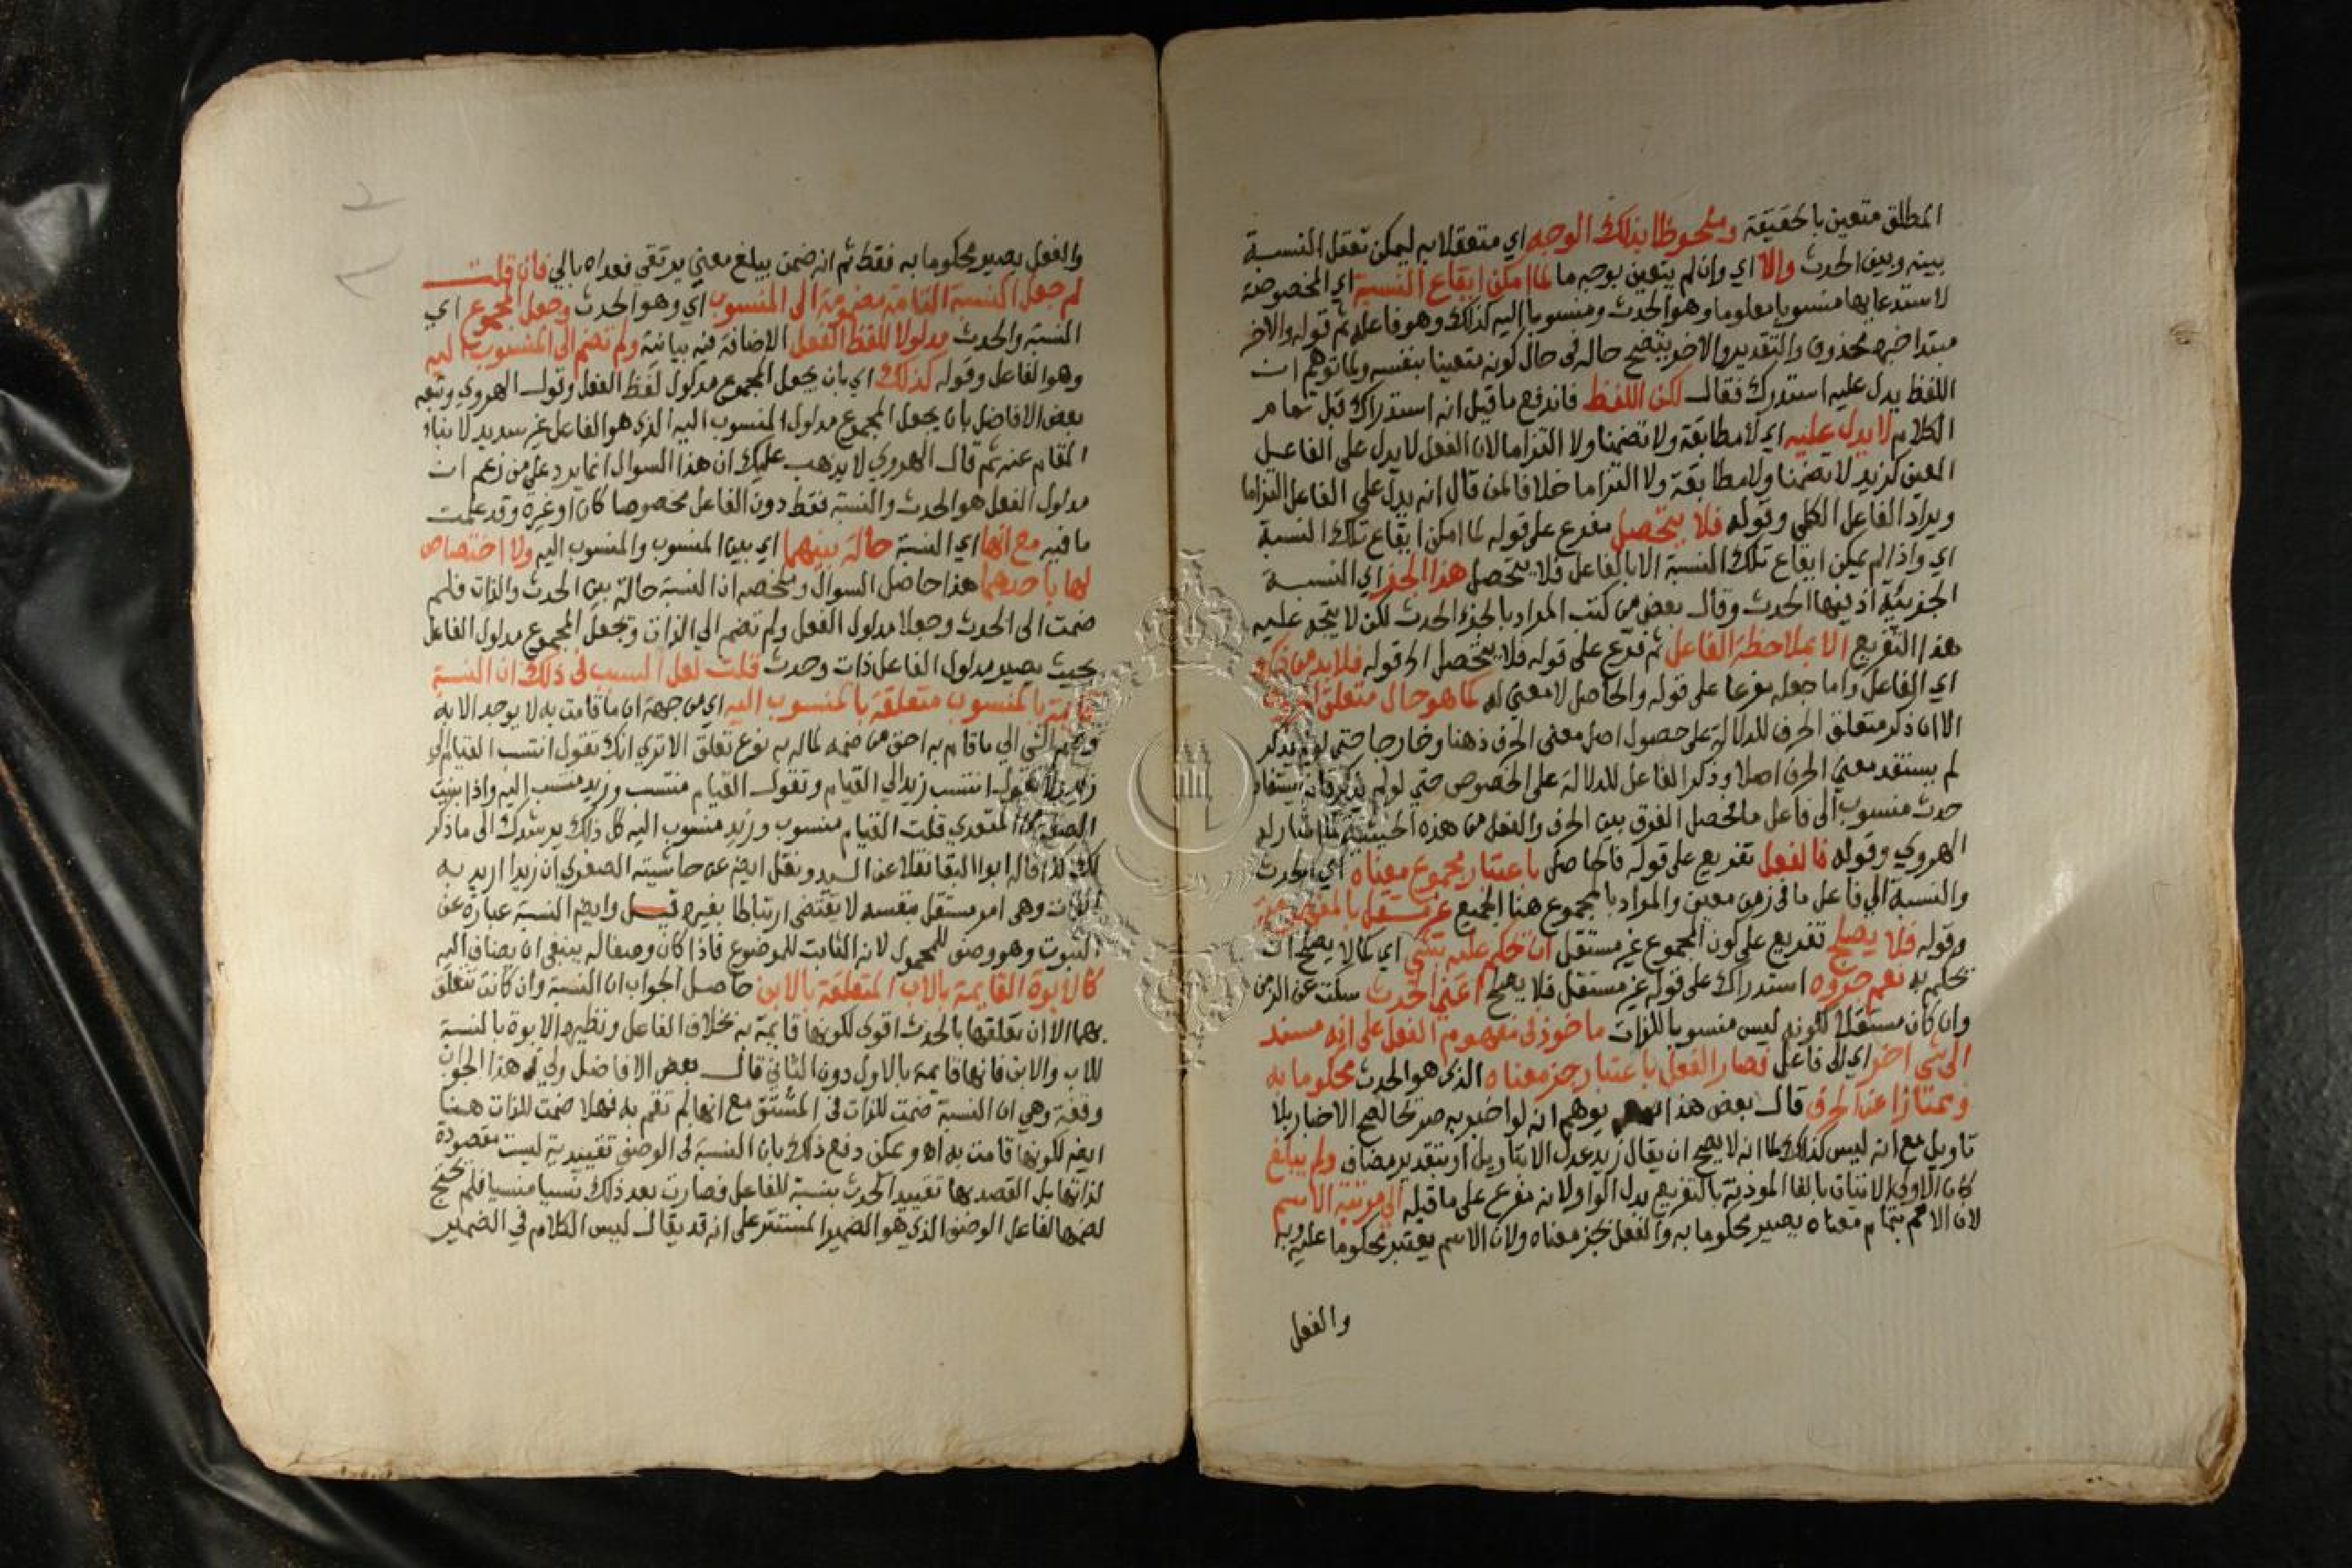 المطلق متعين بالحقيقة وملحوظا بذلك الوجه اي متعقلا به ليمكن تعقل النسبة
بينه وبين الحدث والا اي وان لم يتعين بوجه ما لما امكن ايقاع النسبة اي المخصوصة
لاستدعايها منسوبا معلوما وهو الحدث ومنسوبا اليه كذلك وهو فاعله ثم قوله والاخر
مبتدا خبره محذوف والتقدير والاخر يتضح حاله في حال كونه متعينا بنفسه ولما توهم ان
اللفظ يدل عليه استدرك فقال لكن اللفظ فاندفع ما قيل انه استدراك قبل تمام
الكلام لا يدل عليه اي لا مطابقة ولا تضمنا ولا التزاما لان الفعل لا يدل على الفاعل
المعين كزيد لا تضمنا ولا مطابقة ولا التزاما خلافا لمن قال انه يدل على الفاعل التزاما
ويراد الفاعل الكلي وقوله فلا يتحصل مفرع على قوله لما امكن ايقاع تلك النسبة
اي واذا لم يمكن ايقاع تلك النسبة الا بالفاعل فلا يتحصل هذا الجزء اي النسبة
الجزئية اذ فيها الحدث وقال بعض من كتب المراد بالجزء الحدث لكن لا يتجه عليه
هذا التفريع الا بملاحظة الفاعل ثم فرع على قوله فلا يتحصل الا قوله فلا بد من ذكره
اي الفاعل واما جعله مفرعا على قوله والحاصل لا معنى له كما هو حال متعلق الحرف
الا ان ذكر متعلق الحرف للدلالة على حصول اصل معنى الحرف ذهنا وخارجا حتى لو لم يذكر
لم يستفد معنى الحرف اصلا وذكر الفاعل للدلالة على الخصوص حتى لو لم يذكر فانه يستفاد
حدث منسوب الى فاعل ما لحصل الفرق بين الحرف والفعل من هذه الحيثية كما اشار له
الهروي وقوله فالفعل تفريع على قوله فالحاصل باعتبار مجموع معناه اي الحدث
والنسبة الى فاعل ما في زمن معين والمراد بالمجموع هنا الجميع غير مستقل بالمفهومية
وقوله فلا يصلح تفريع على كون المجموع غير مستقل ان يحكم عليه بشي اي كما لا يصلح ان
يحكم به نعم جزوه استدراك على قوله غير مستقل فلا يصلح اعني الحدث سكت عن الزمن
وان كان مستقلا لكونه ليس منسوبا للذات ماخوذ في مفهوم الفعل على انه مسند
الى شي اخر اي الى فاعل فصار الفعل باعتبار جزء معناه الذي هو الحدث محكوما به
وممتازا عن الحرف قال بعض هذا يوهم انه لو اخبر به صريحا لصح الاخبار بلا
تاويل مع انه ليس كذلك لما انه لا يصح ان يقال زيد عدل الا بتاويل او بتقدير مضاف ولم يبلغ
كان الاولى الاتيان بالفا الموذنة بالتفريع بدل الواو لانه مفرع على ما قبله الى مرتبة الاسم
لان الاسم بتمام معناه يصير محكوما به والفعل بجزء معناه ولان الاسم يعتبر محكوما عليه وبه
والفعل
والفعل يصير محكوما به فقط ثم انه ضمن يبلغ معنى يرتقي فعداه بالى فان قلت
لم جعل النسبة القائمة مضمومة الى المنسوب اي وهو الحدث وجعل المجموع اي
النسبة والحدث مدلولا للفظ الفعل الاضافة فيه بيانية ولم تضم الى المنسوب اليه
وهو الفاعل وقوله كذلك اي بان يجعل المجموع مدلول لفظ الفعل وقول الهروي وتبعه
بعض الافاضل بان يجعل المجموع مدلول المنسوب اليه الذي هو الفاعل غير سديد لاباء
المقام عنه ثم قال الهروي لا يذهب عليك ان هذا السوال انما يرد على من زعم ان
مدلول الفعل هو الحدث والنسبة فقط دون الفاعل مخصوصا كان او غيره وقد علمت
ما فيه مع انها اي النسبة حالة بينهما اي بين المنسوب والمنسوب اليه ولا اختصاص
لها باحدهما هذا حاصل السوال وملخصه ان النسبة حالة بين الحدث والذات فلم
ضمت الى الحدث وجعلا مدلول الفعل ولم تضم الى الذات وتجعل المجموع مدلول الفاعل
بحيث يصير مدلول الفاعل ذات وحدث قلت لعل السبب في ذلك ان النسبة
قايمة بالمنسوب متعلقة بالمنسوب اليه اي من جهة ان ما قامت به لا يوجد الا به
وضم الشي الى ما قام به احق من ضمه لما له به نوع تعلق الا ترى انك تقول انتسب القيام الى
زيد ولا تقول انتسب زيد الى القيام وتقول القيام منتسب وزيد منتسب اليه واذا بنيت
الصفة من المتعدي قلت القيام منسوب وزيد منسوب اليه كل ذلك يرشدك الى ما ذكر
لك كذا قاله ابو البقا نقلا عن السيد ونقل ايضا عن حاشيته الصغرى ان زيدا اريد به
الذات وهي امر مستقل بنفسه لا يقتضى ارتباطا بغيره قيل وايضا النسبة عبارة عن
الثبوت وهو وصف للمحمول لانه الثابت للموضوع فاذا كان وصفا له ينبغي ان يضاف اليه
كالابوة القايمة بالاب المتعلقة بالابن حاصل الجواب ان النسبة وان كانت تتعلق
بهما الا ان تعلقها بالحدث اقوى لكونها قايمة به بخلاف الفاعل ونظيره الابوة بالنسبة
للاب والابن فانها قايمة بالاول دون الثاني قال بعض الافاضل ولي في هذا الجواب
وقفة وهي ان النسبة ضمت للذات في المشتق مع انها لم تقم به فهلا ضمت للذات هنا
ايضا لكونها قامت به اه ويمكن دفع ذلك بان النسبة في الوصف تقييدية ليست مقصودة
لذاتها بل القصد بها تقييد الحدث بنسبة للفاعل فصارت بعد ذلك نسيا منسيا فلم يحتج
لضمها لفاعل الوصف الذي هو الضمير المستتر على انه قد يقال ليس الكلام في الضمير